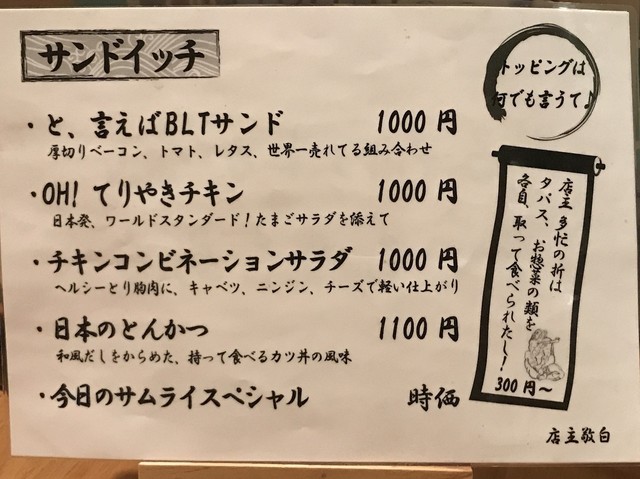 サンドイッチ
・と、言えばBLTサンド 1000 円
厚切りベーコン、トマト、レタス、世界一売れてる組み合わせ
・OH! てりやきチキン 1000 円
日本発、ワールドスタンダード!たまごサラダを添えて
・チキンコンビネーションサラダ 1000 円
ヘルシーとり胸肉に、キャベツ、ニンジン、チーズで軽い仕上がり
・日本のとんかつ 1100 円
和風だしをからめた、持って食べるカツ丼の風味
・今日のサムライスペシャル 時価
トッピングは
何でも言うて♪
店主 多忙の折は
タパス、お惣菜の類を
各自、取って食べられたし!
300円~
店主敬白